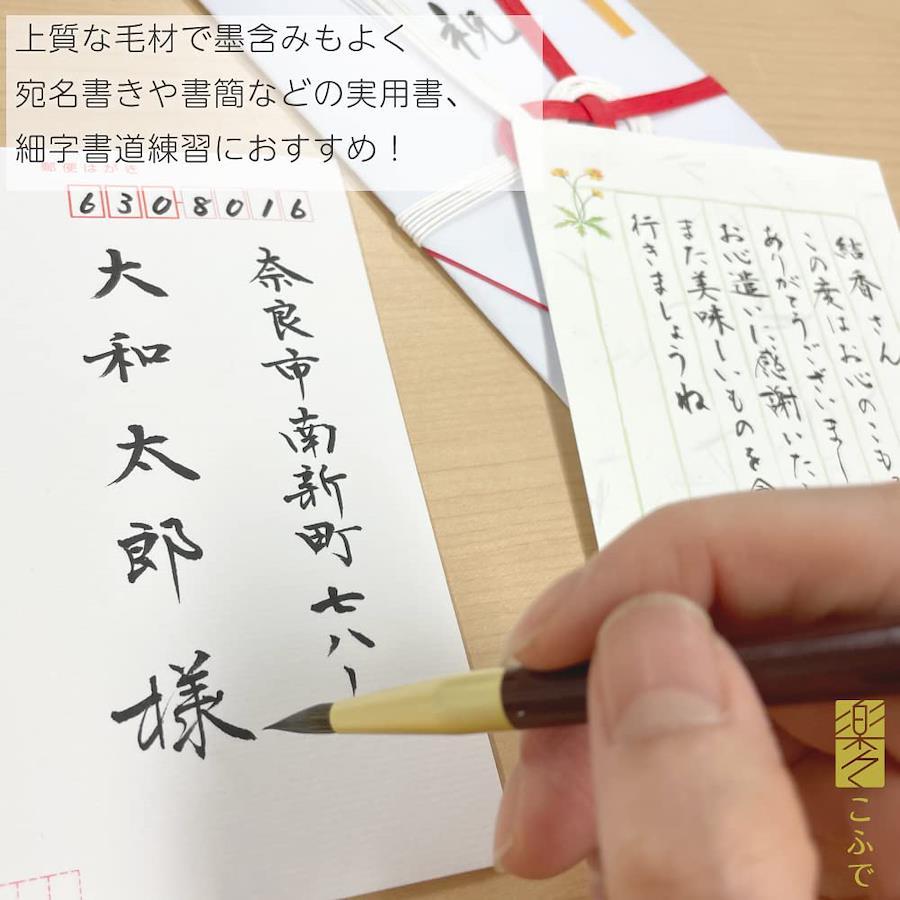 上質な毛材で墨含みもよく
宛名書きや書簡などの実用書、
細字書道練習におすすめ！
祝
郵便はがき
6308016
奈良市南新町七八ー
大和太郎様
結香さん
この度はお心のこも
ありがとうございまし
お心遣いに感謝いた
また美味しいものを食
行きましょうね
楽々
こふで